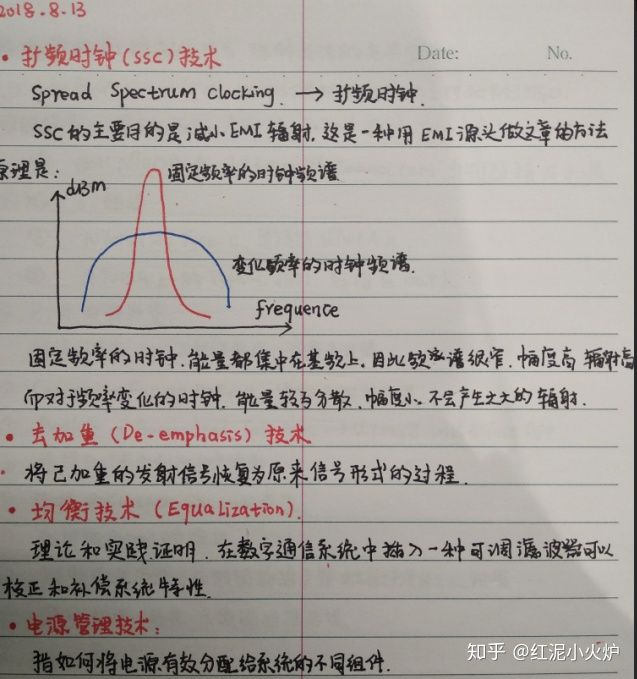 2018.8.13
• 扩频时钟(SSC)技术
Date: No.
Spread Spectrum clocking. → 扩频时钟.
SSC的主要目的是减小EMI辐射,这是一种用EMI源头做文章的方法
原理是:
dBm
固定频率的时钟频谱
变化频率的时钟频谱.
frequence
固定频率的时钟,能量都集中在基频上,因此频谱很窄,幅度高 辐射高
而对于频率变化的时钟,能量较为分散,幅度小,不会产生太大的辐射.
• 去加重(De-emphasis)技术
• 将已加重的发射信号恢复为原来信号形式的过程.
• 均衡技术(Equalization).
理论和实践证明,在数字通信系统中插入一种可调滤波器可以
校正和补偿系统特性.
• 电源管理技术:
指如何将电源有效分配给系统的不同组件.
知乎 @红泥小火炉